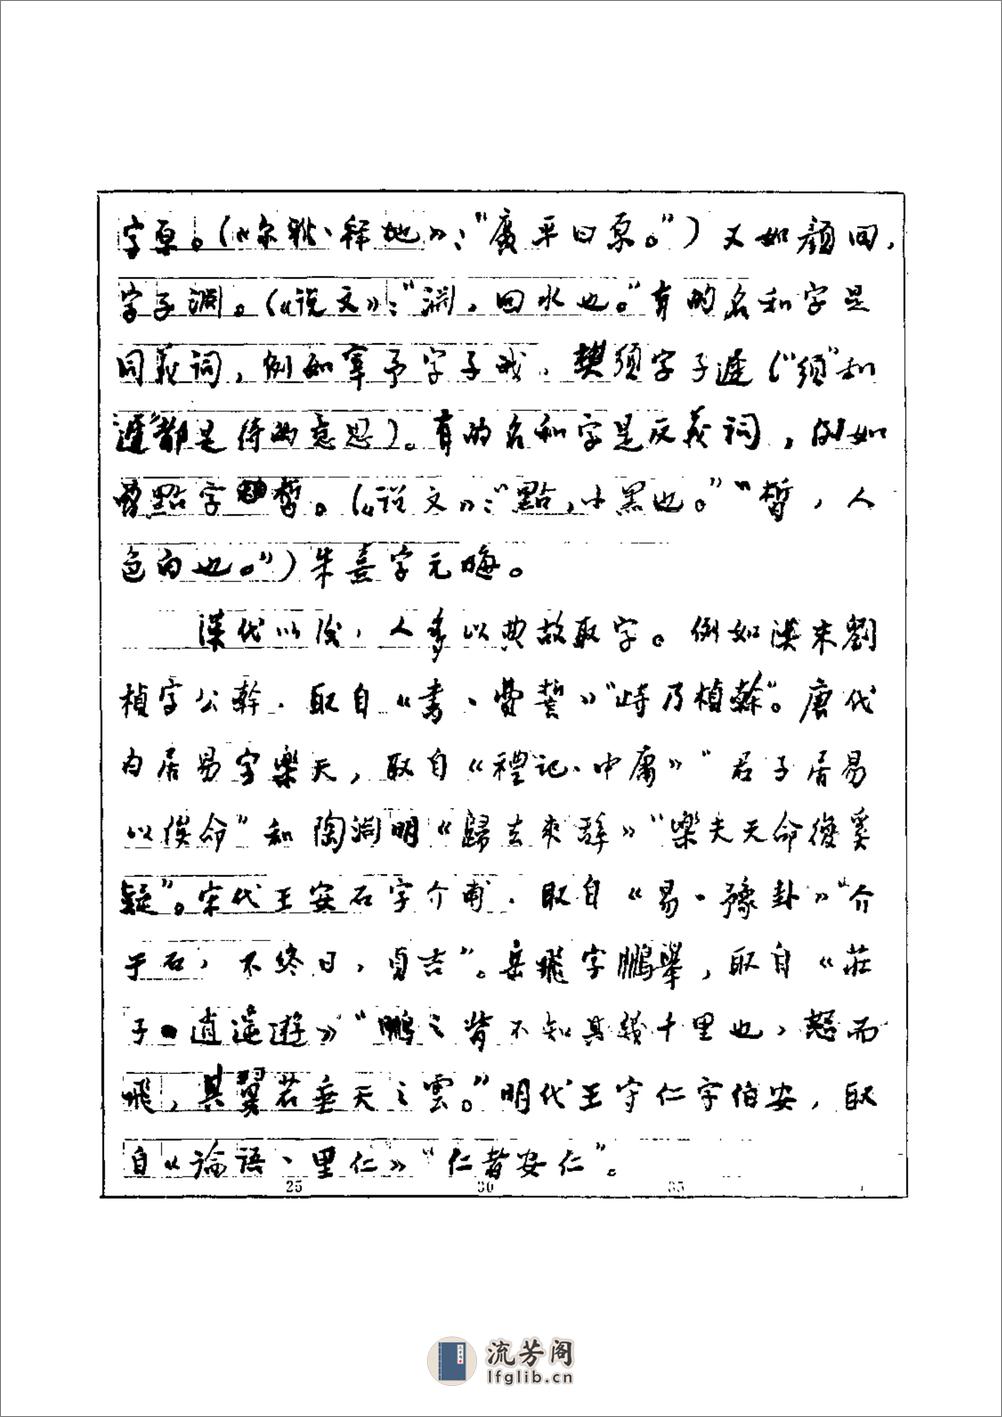 字原。(《尔雅·释地》：“廣平曰原。”)又如顏回，
字子淵。(《说文》：“淵，回水也。”有的名和字是
同義词，例如宰予字子我，樊須字子遲(“須”和
遲”都是待的意思)。有的名和字是反義词，例如
曾點字皙。(《说文》：“點，小黑也。”“皙，人
色白也。”)朱熹字元晦。
漢代以後，人多以典故取字。例如漢末劉
楨字公幹，取自《書·費誓》“峙乃楨榦”。唐代
白居易字樂天，取自《禮記·中庸》“君子居易
以俟命”和陶淵明《歸去來辞》“樂夫天命復奚
疑”。宋代王安石字介甫，取自《易·豫卦》“介
于石，不終日，貞吉”。岳飛字鵬舉，取自《莊
子·逍遥遊》“鵬之背不知其幾千里也，怒而
飛，其翼若垂天之雲。”明代王守仁字伯安，取
自《论語·里仁》“仁者安仁”。
25 30 35
流芳阁
lfglib.cn